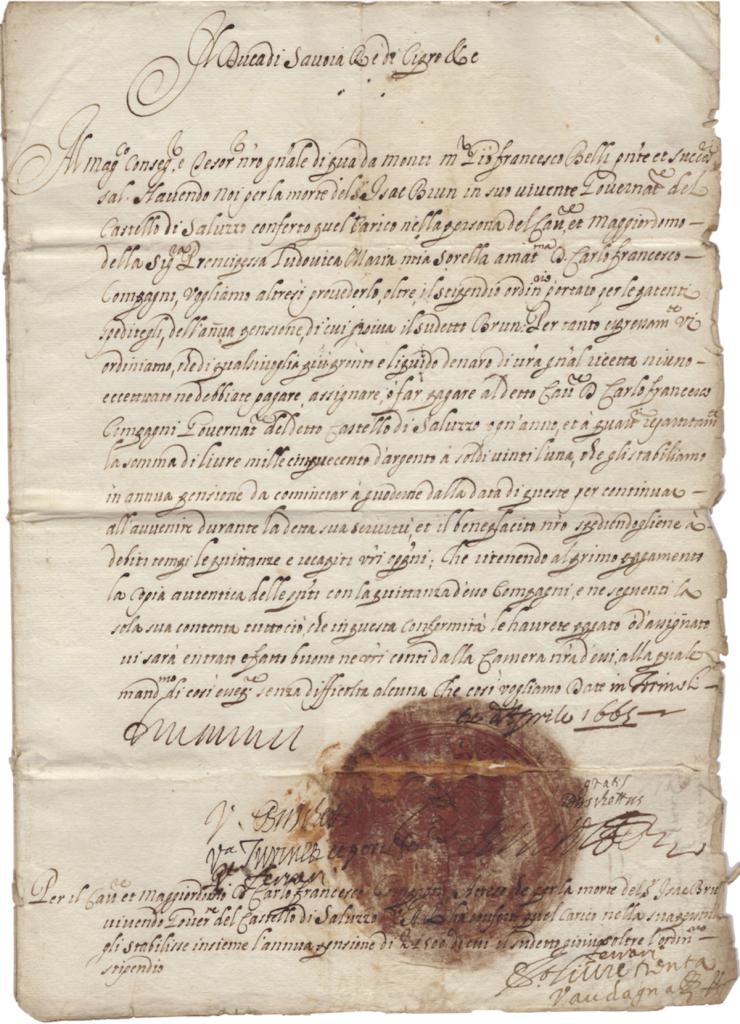 Il Duca di Savoia Re di Cipro &c
Al mag.co Conseg.e e Tesor.e n'ro g'nale di quà da monti m.r Pio francesco Belli p'nte et succes
sal. Havendo Noi per la morte del S.r Isac Brun in suo vivente Governat.re del
Castello di Saluzzo conferto quel Carico nella persona del Cau.re et Maggiordomo
della Sig.ra Prencipessa Ludovica Maria mia Sorella amat.ma D. Carlo francesco
Compagni, Vogliamo altresi provederlo, oltre il stipendio ordin.rio portato per le patenti
speditegli, dell'annua pensione, di cui gioiva il sudetto Brun. Per tanto espressam.te vi
ordiniamo, che di qualsivoglia più pronto e liquido denaro di v'ra g'nal ricetta niuno
eccettuato ne debbiate pagare, assignare, ò far pagare al detto Cau.re D. Carlo francesco
Compagni Governat.re del detto Castello di Saluzzo ogn'anno, et à quart.i repartitam.te
la somma di livre mille cinquecento d'argento à soldi vinti l'una, che gli stabiliamo
in annua pensione da cominciar à goderne dalla data di queste per continuar
all'avvenire durante la detta sua servitù, et il beneplacito n'ro spedendogliene à
debiti tempi le quittanze e recapiti v'ri opp'ni; Che ritenendo al primo pagamento
la Copia autentica delle p'nti con la quittanza d'esso Compagni, e ne seguenti la
sola sua contenta tutto ciò, che in questa Conformità le haurete pagato od'assignato
vi sarà entrato e fatto buono ne v'ri conti dalla Camera n'ra d'essi, alla quale
mand.mo di così eseg.re senza difficoltà alcuna Che così vogliamo Date in Torino li
Aprile 1665
V. Buschetti
gratis
Buschettus
V.a Turinetti
V.t Ferrari
Per il Cau.re et Maggiordomo D. Carlo francesco Compagni Atteso che per la morte del S.r Isac Brun
vivendo Gover.re del Castello di Saluzzo V.A.R. ha conferto quel Carico nella sua persona
gli stabilisse insieme l'annua pensione di L 1500 di cui il sudetto gioiva oltre l'ordin.rio
stipendio
Ferrari
livre trenta
Vaudagna